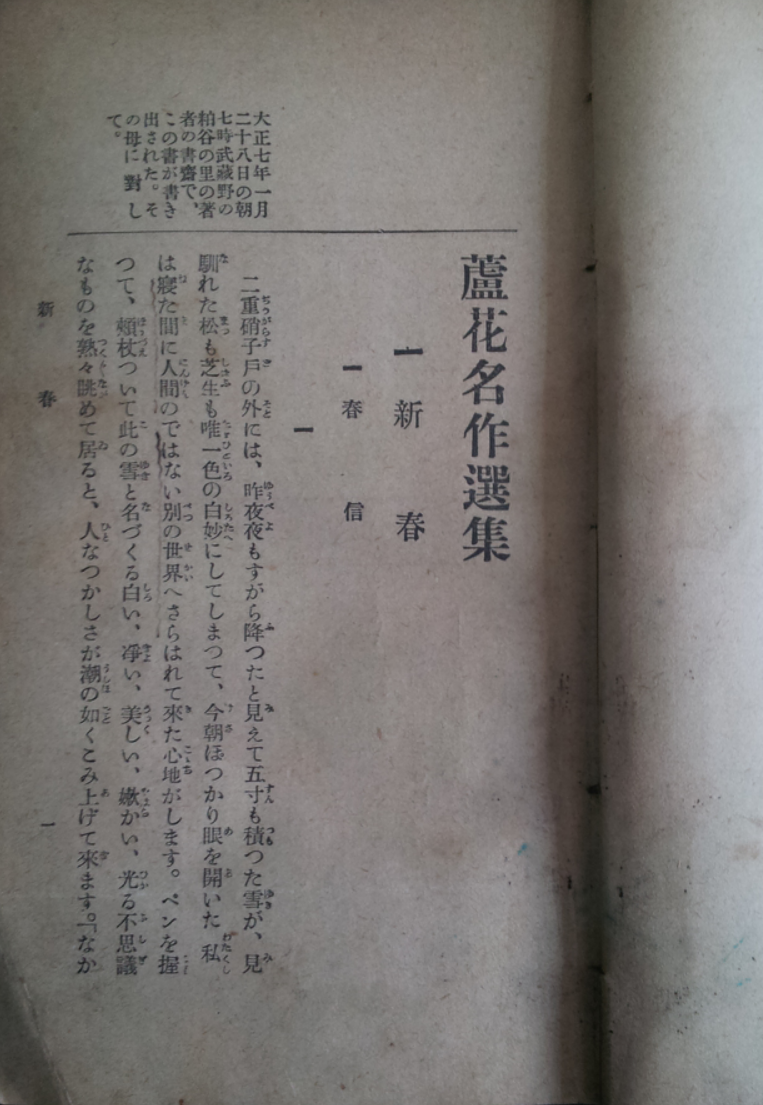 蘆花名作選集
一 新春
一 春信
一
大正七年一月
二十八日の朝
七時武藏野の
粕谷の里の著
者の書齋で、
この書が書き
出された。そ
の母に對し
て。
二重硝子戸の外には、昨夜夜もすがら降つたと見えて五寸も積つた雪が、見
馴れた松も芝生も唯一色の白妙にしてしまつて、今朝ほつかり眼を開いた私
は寢た間に人間のではない別の世界へさらはれて來た心地がします。ペンを握
つて、頰杖ついて此の雪と名づくる白い、淨い、美しい、嫩かい、光る不思議
なものを熟々眺めて居ると、人なつかしさが潮の如くこみ上げて來ます。「なか
新春
一